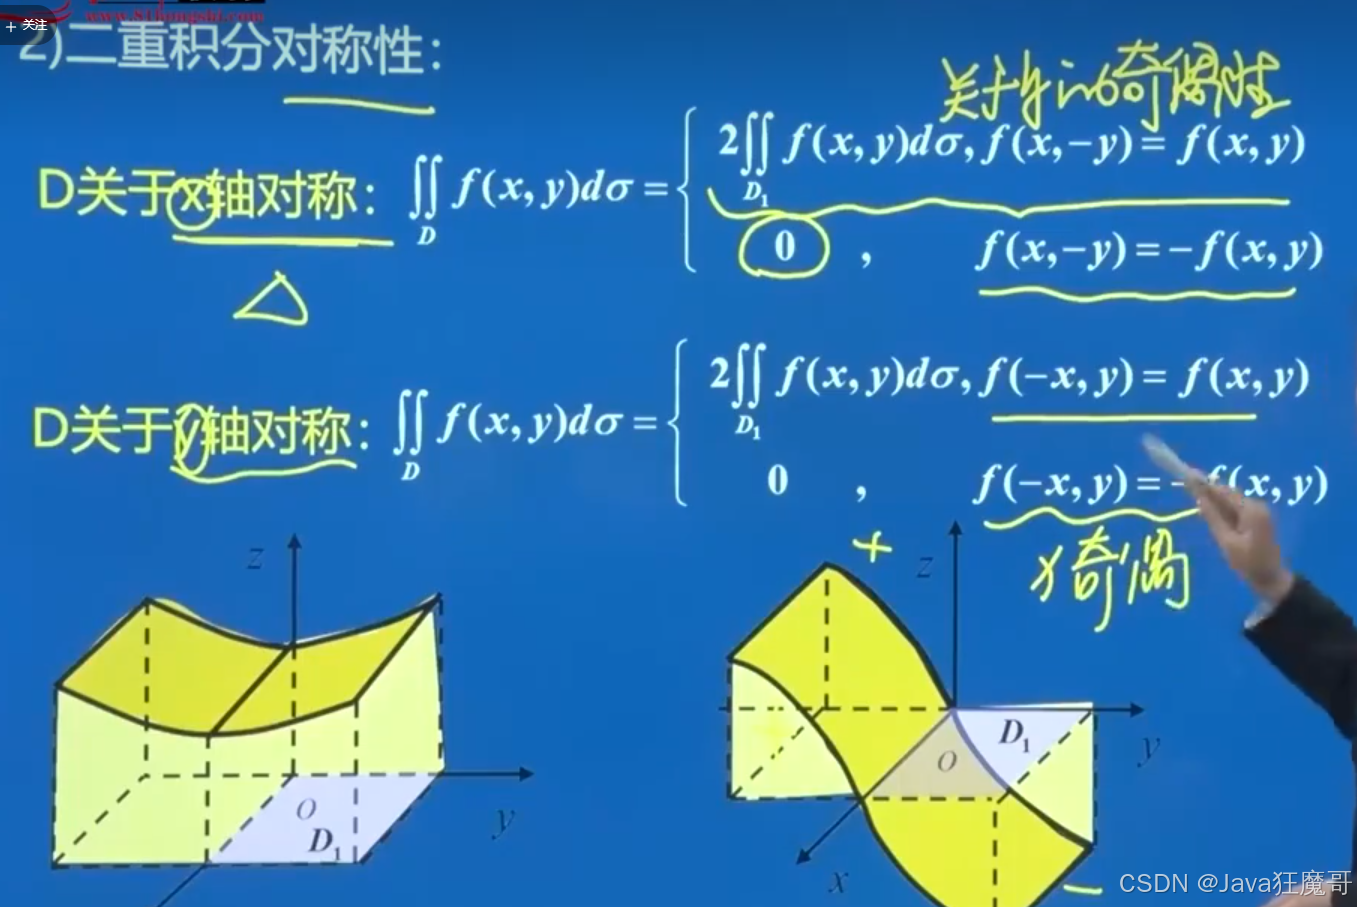 + 关注
2)二重积分对称性:
关于y的奇偶性
D关于x轴对称: ∬_D f(x,y)dσ = { 2∬_{D₁} f(x,y)dσ, f(x,-y) = f(x,y)
0 , f(x,-y) = -f(x,y)
D关于y轴对称: ∬_D f(x,y)dσ = { 2∬_{D₁} f(x,y)dσ, f(-x,y) = f(x,y)
0 , f(-x,y) = -f(x,y)
x奇偶
z
O
D₁
y
+
z
D₁
O
y
x
−
CSDN @Java狂魔哥